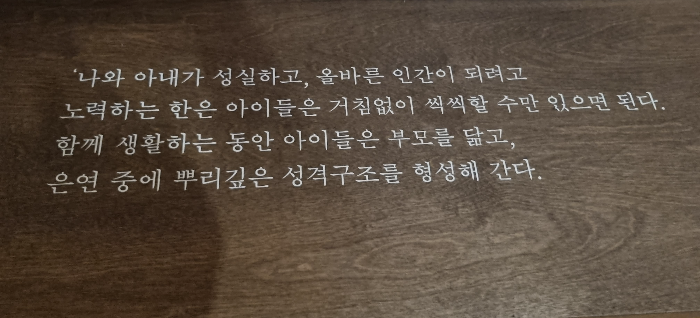 ‘나와 아내가 성실하고, 올바른 인간이 되려고
노력하는 한은 아이들은 거침없이 씩씩할 수만 있으면 된다.
함께 생활하는 동안 아이들은 부모를 닮고,
은연 중에 뿌리깊은 성격구조를 형성해 간다.